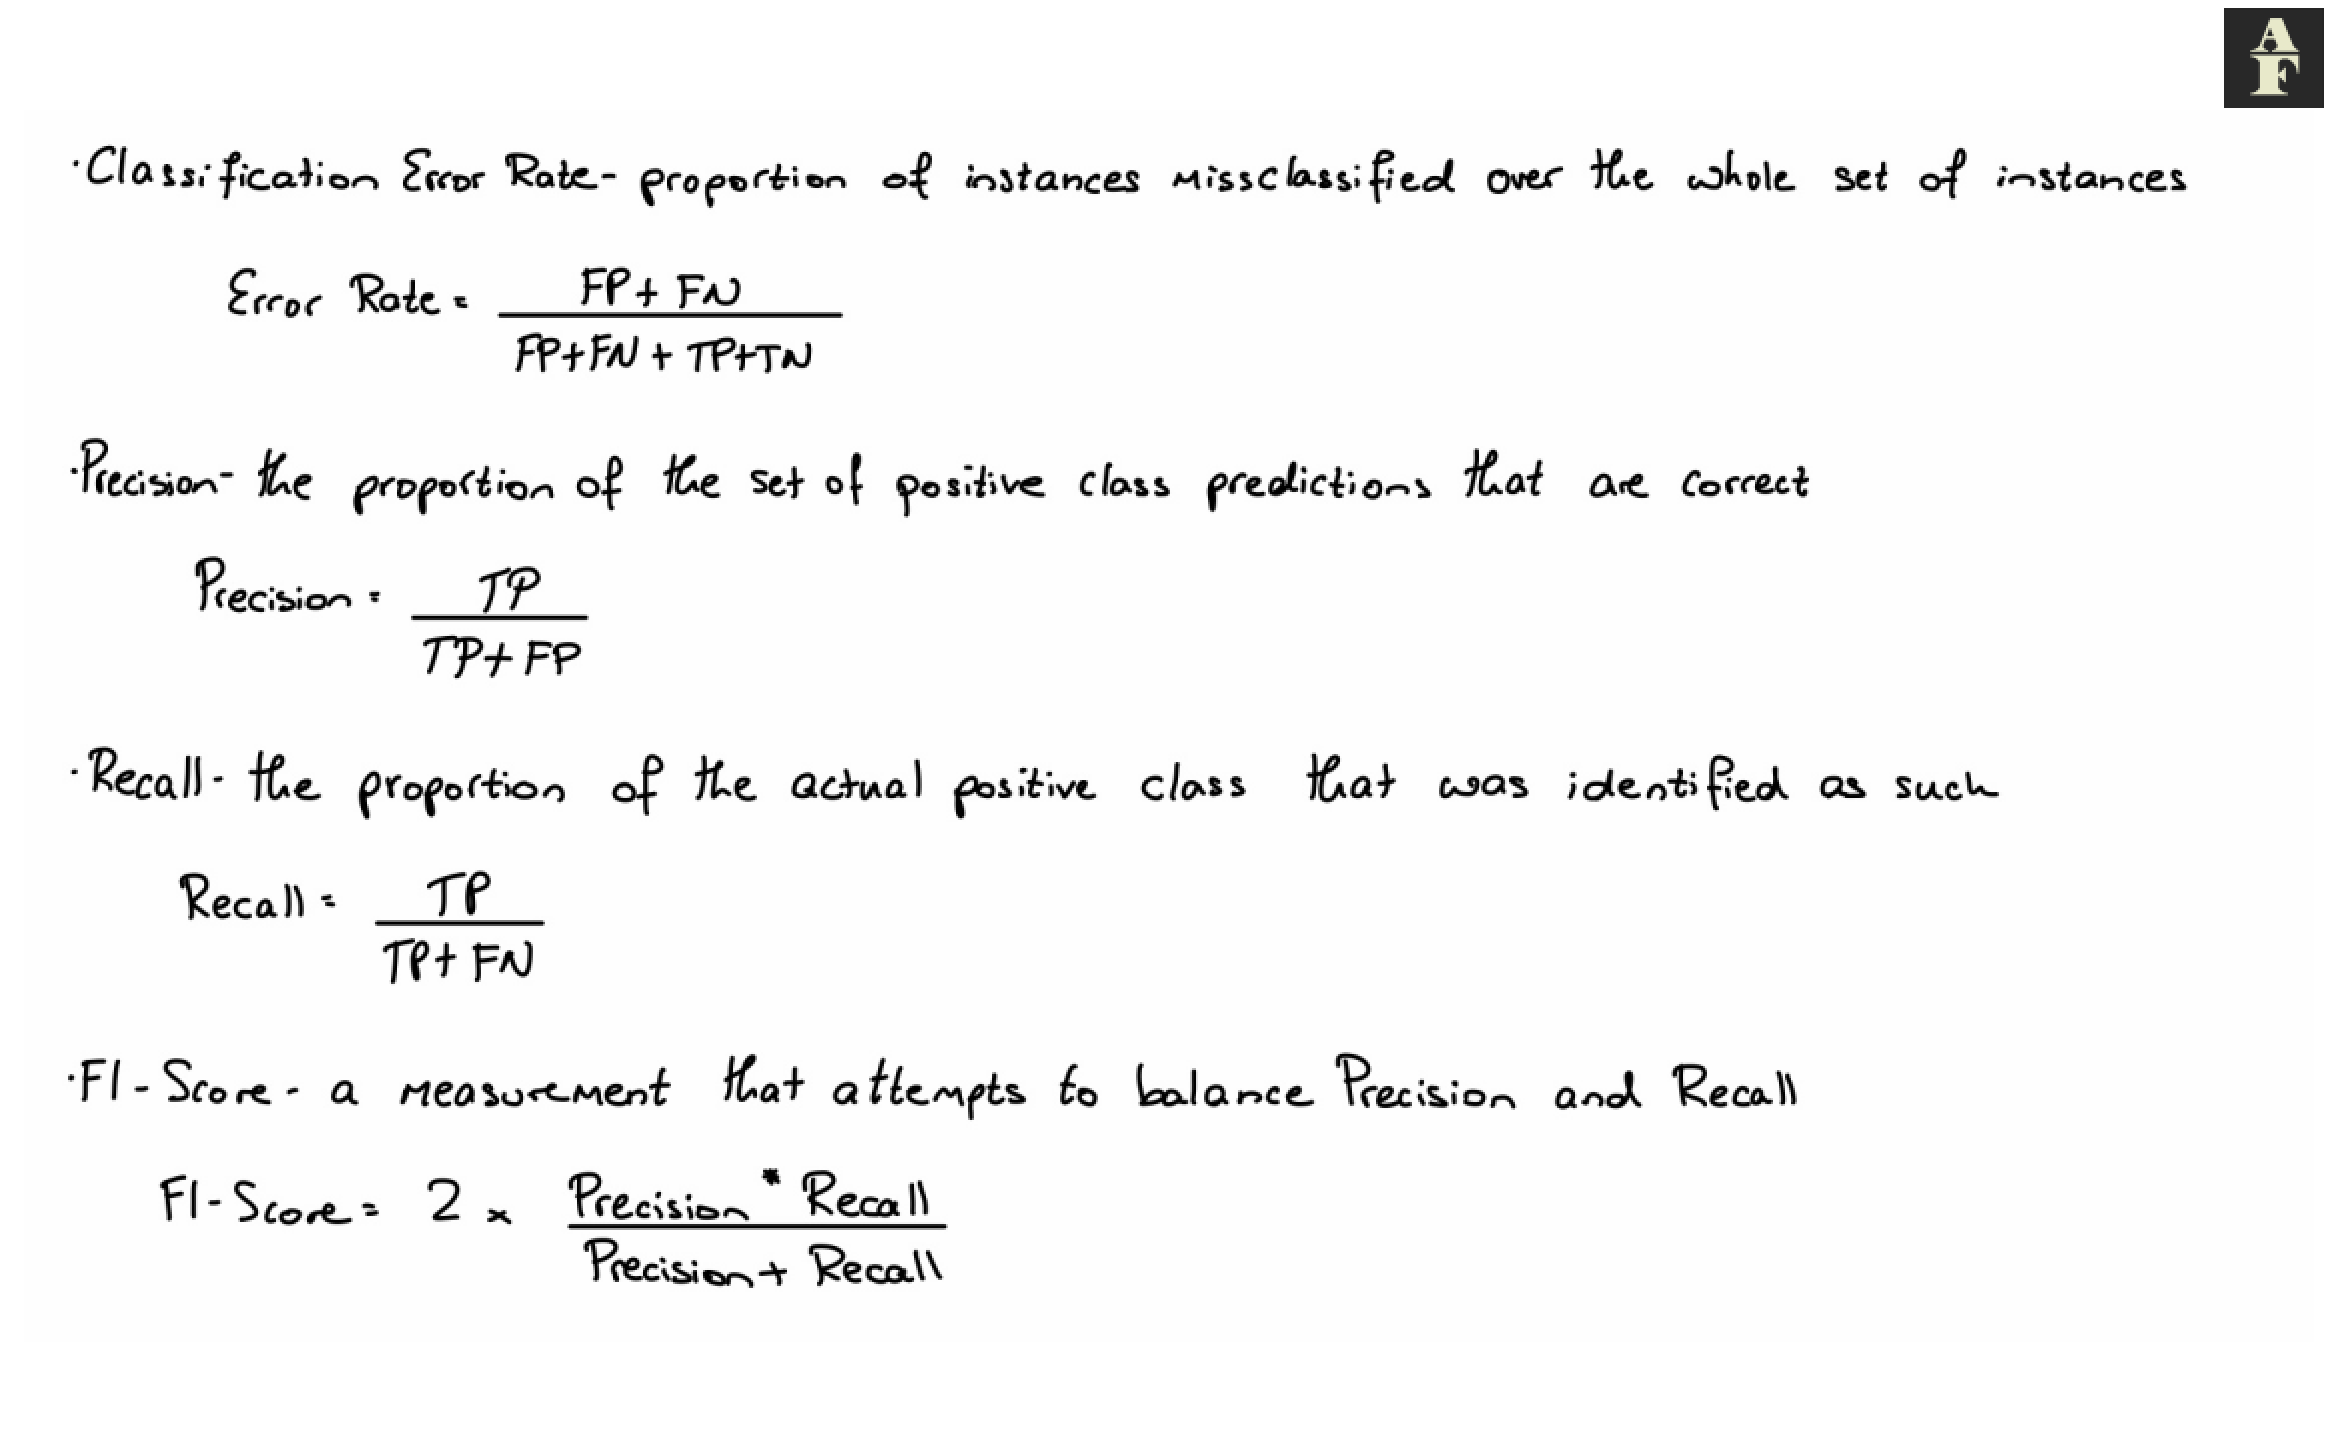 A
F
·Classification Error Rate- proportion of instances missclassified over the whole set of instances
Error Rate = FP + FN
FP+FN + TP+TN
·Precision- the proportion of the set of positive class predictions that are correct
Precision = TP
TP+ FP
·Recall- the proportion of the actual positive class that was identified as such
Recall = TP
TP+ FN
·F1-Score- a measurement that attempts to balance Precision and Recall
F1-Score = 2 × Precision * Recall
Precision + Recall